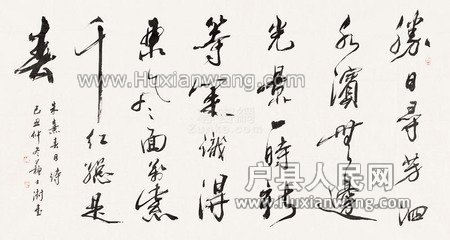 勝日尋芳泗
水濱無邊
光景一時新
等閒識得
東風面萬紫
千紅總是
春
朱熹春日詩
己丑仲冬
www.Huxianwang.com
户县人民网
www.Huxianwang.com